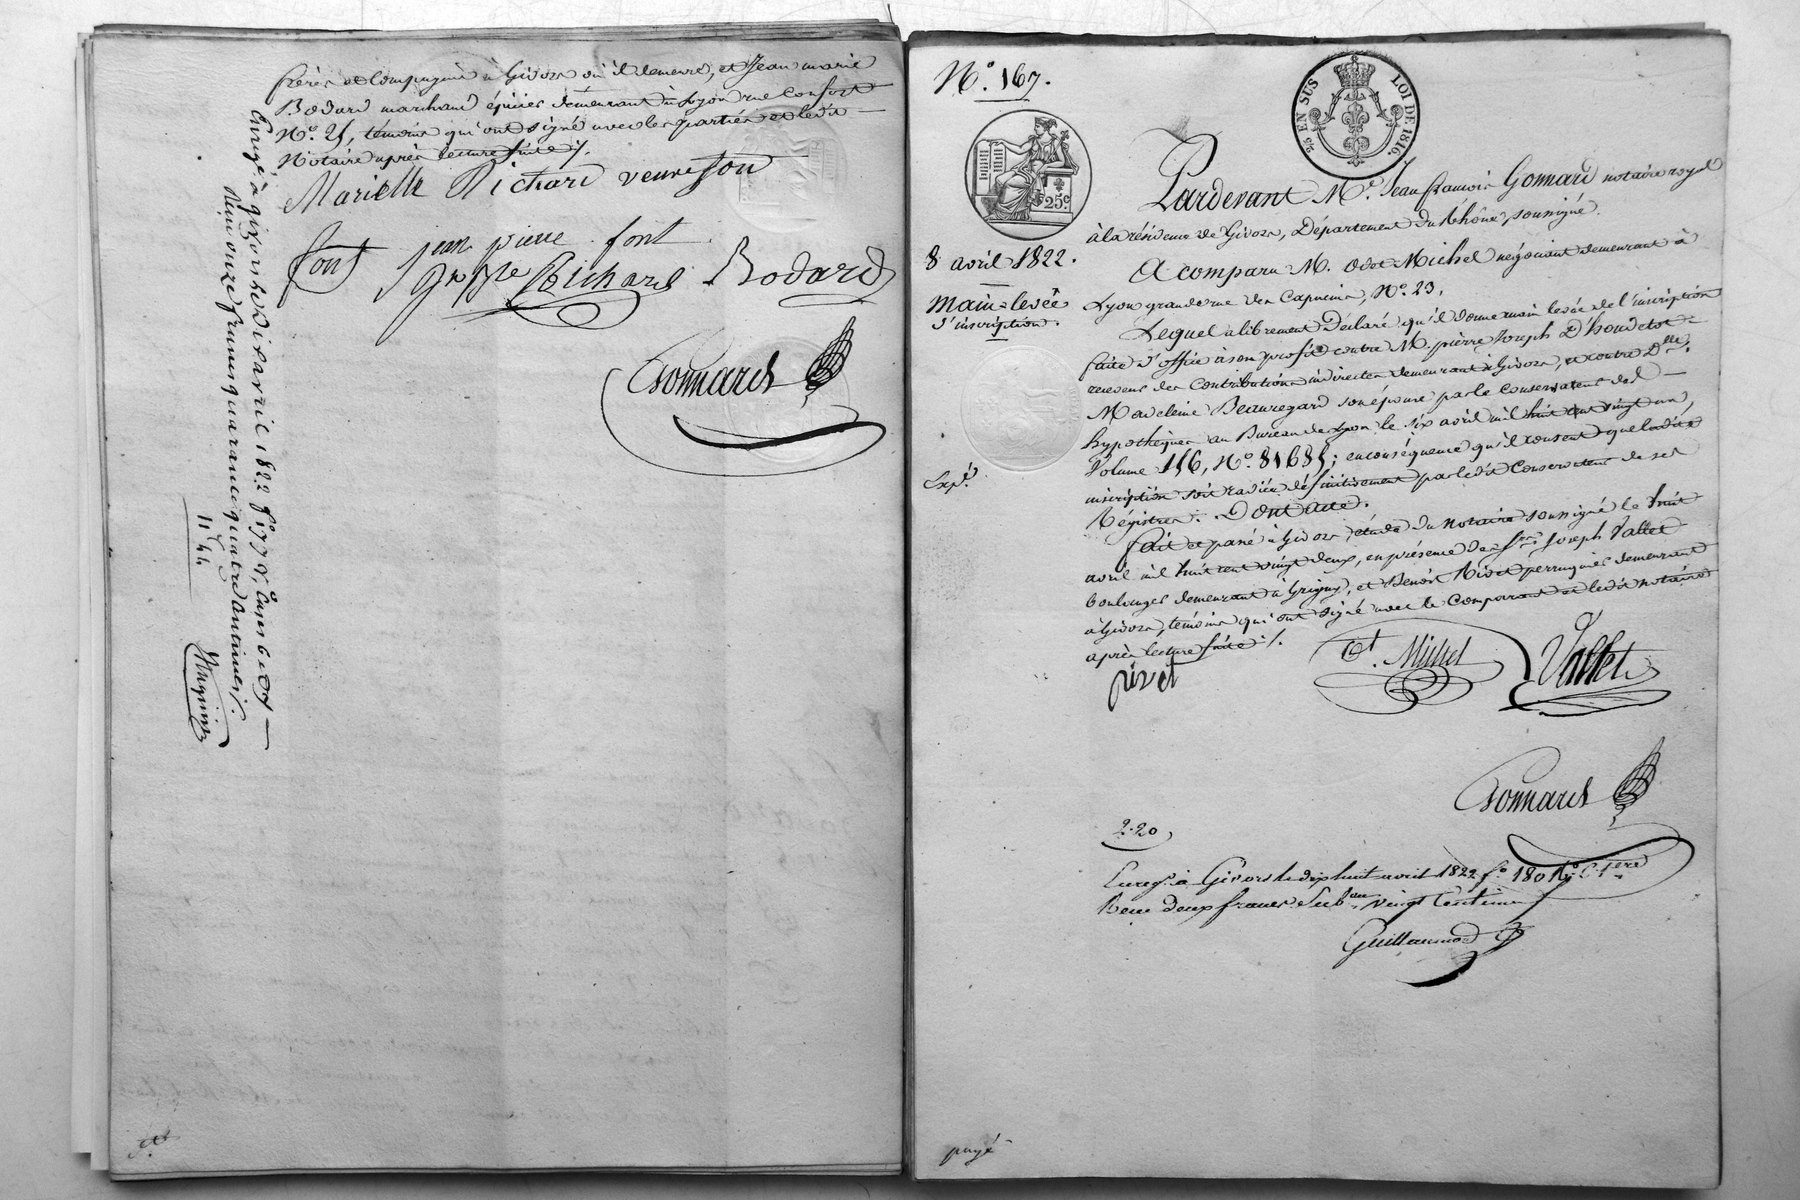 frères et Compagnie à Givors où il demeure, et Jean marie
Bodard marchand épicier demeurant à Lyon rue Confort
N.º 25, témoins qui ont signé avec les parties et ledit
Notaire après lecture faite ./.
Mariette Richard veuve font
font jean pierre font
Richard Bodard
Gonnard
Enregé à givors le dix avril 1822 fº 177 Vº
Reçu onze francs quarante quatre centimes.
11 44
N.º 167.
25 EN SUS
LOI DE 1816.
25c
8 avril 1822.
main-levée
d'inscription.
Expé.
Pardevant M.e Jean françois Gonnard notaire royal
à la résidence de Givors, Département du Rhône, soussigné.
A comparu M. Odet Michel négociant demeurant à
Lyon grande rue des Capucins, N.º 23.
Lequel a librement déclaré qu'il donne main levée de l'inscription
faite d'office à son profit contre M. pierre Joseph D'houdetot
receveur des Contributions indirectes demeurant à Givors, et contre D.lle
Madeleine Beauregard son épouse par le Conservateur des
hypothèques au Bureau de Lyon le six avril mil huit cent vingt un,
Volume 156, N.º 81685; en conséquence qu'il consent que ladite
inscription soit radiée définitivement par ledit Conservateur de ses
Régistres. Dont acte.
fait et passé à Givors, étude du notaire soussigné le huit
avril mil huit cent vingt deux, en présence des Srs Joseph Vallet
boulanger demeurant à Grigny, et Benoît Rivet perruquier demeurant
à Givors, témoins qui ont signé avec le Comparant et ledit notaire
après lecture faite ./.
rivet
Ot. Michel
Vallet
Gonnard
2.20
Enregé à Givors le dix huit avril 1822 fº 180 Rº C. 1ere
Reçu deux francs Subon vingt Centimes
Guillaumond
payé